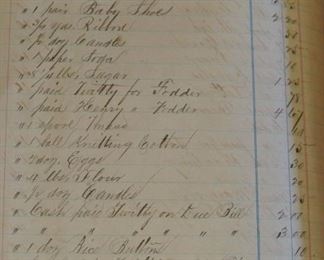 " 1 pair Baby Shoes
" yds Ribbon 20
" ½ doz Candles
" 1 paper Soda
" 8 lbs Sugar 1.25
" paid Twitty for Fodder 78
" paid Henry " Fodder 4
" 1 spool 10
" 1 ball Knitting Cotton 15
" 2 doz Eggs 30
" 4 lbs Flour 20
" ½ doz Candles 25
" Cash paid Twitty on Due Bill 2.00
" " " " " " 3.00
" 1 doz Rice Buttons 10